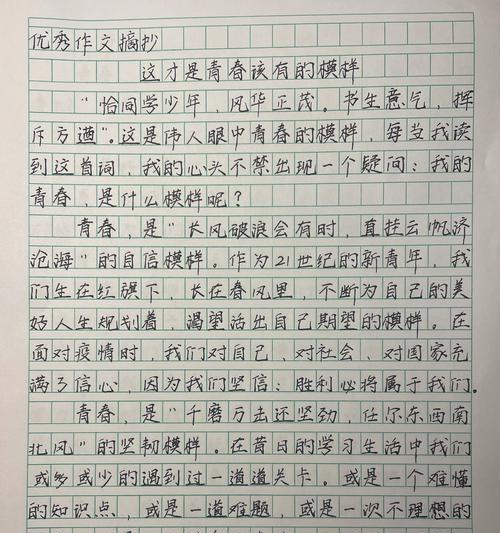 优秀作文摘抄
这才是青春该有的模样
"恰同学少年，风华正茂。书生意气，挥
斥方遒"。这是伟人眼中青春的模样，每当我读
到这首词，我的心头不禁出现一个疑问：我的
青春，是什么模样呢？
青春，是"长风破浪会有时，直挂云帆济
沧海"的自信模样。作为21世纪的新青年，我
们生在红旗下，长在春风里，不断为自己的美
好人生规划着，渴望活出自己期望的模样。在
面对疫情时，我们对自己、对社会、对国家充
满了信心，因为我们坚信：胜利必将属于我们。
青春，是"千磨万击还坚劲，任尔东西南
北风"的坚韧模样。在昔日的学习生活中我们
或多或少的遇到过一道道关卡。或是一个难懂
的知识点，或是一道难题，或是一次不理想的